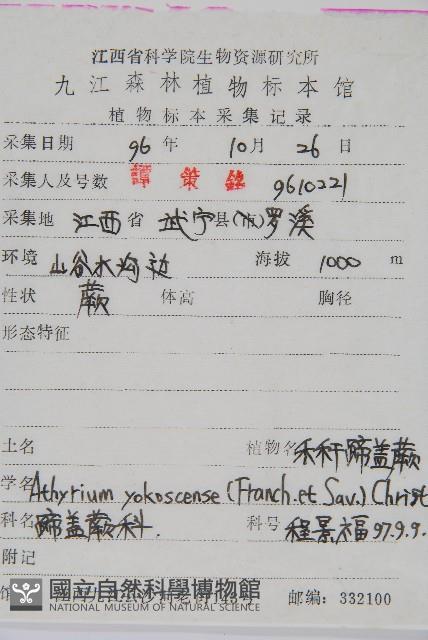 江西省科学院生物资源研究所
九江森林植物标本馆
植物标本采集记录
采集日期 96 年 10 月 26 日
采集人及号数 譚策銘 9610221
采集地 江西 省 武宁 县(市) 罗溪
环境 山谷水沟边 海拔 1000 m
性状 蕨 体高 胸径
形态特征
土名 植物名 禾秆蹄盖蕨
学名 Athyrium yokoscense (Franch. et Sav.) Christ
科名 蹄盖蕨科. 科号 程景福 97.9.9.
附记
國立自然科學博物館
NATIONAL MUSEUM OF NATURAL SCIENCE
邮编: 332100